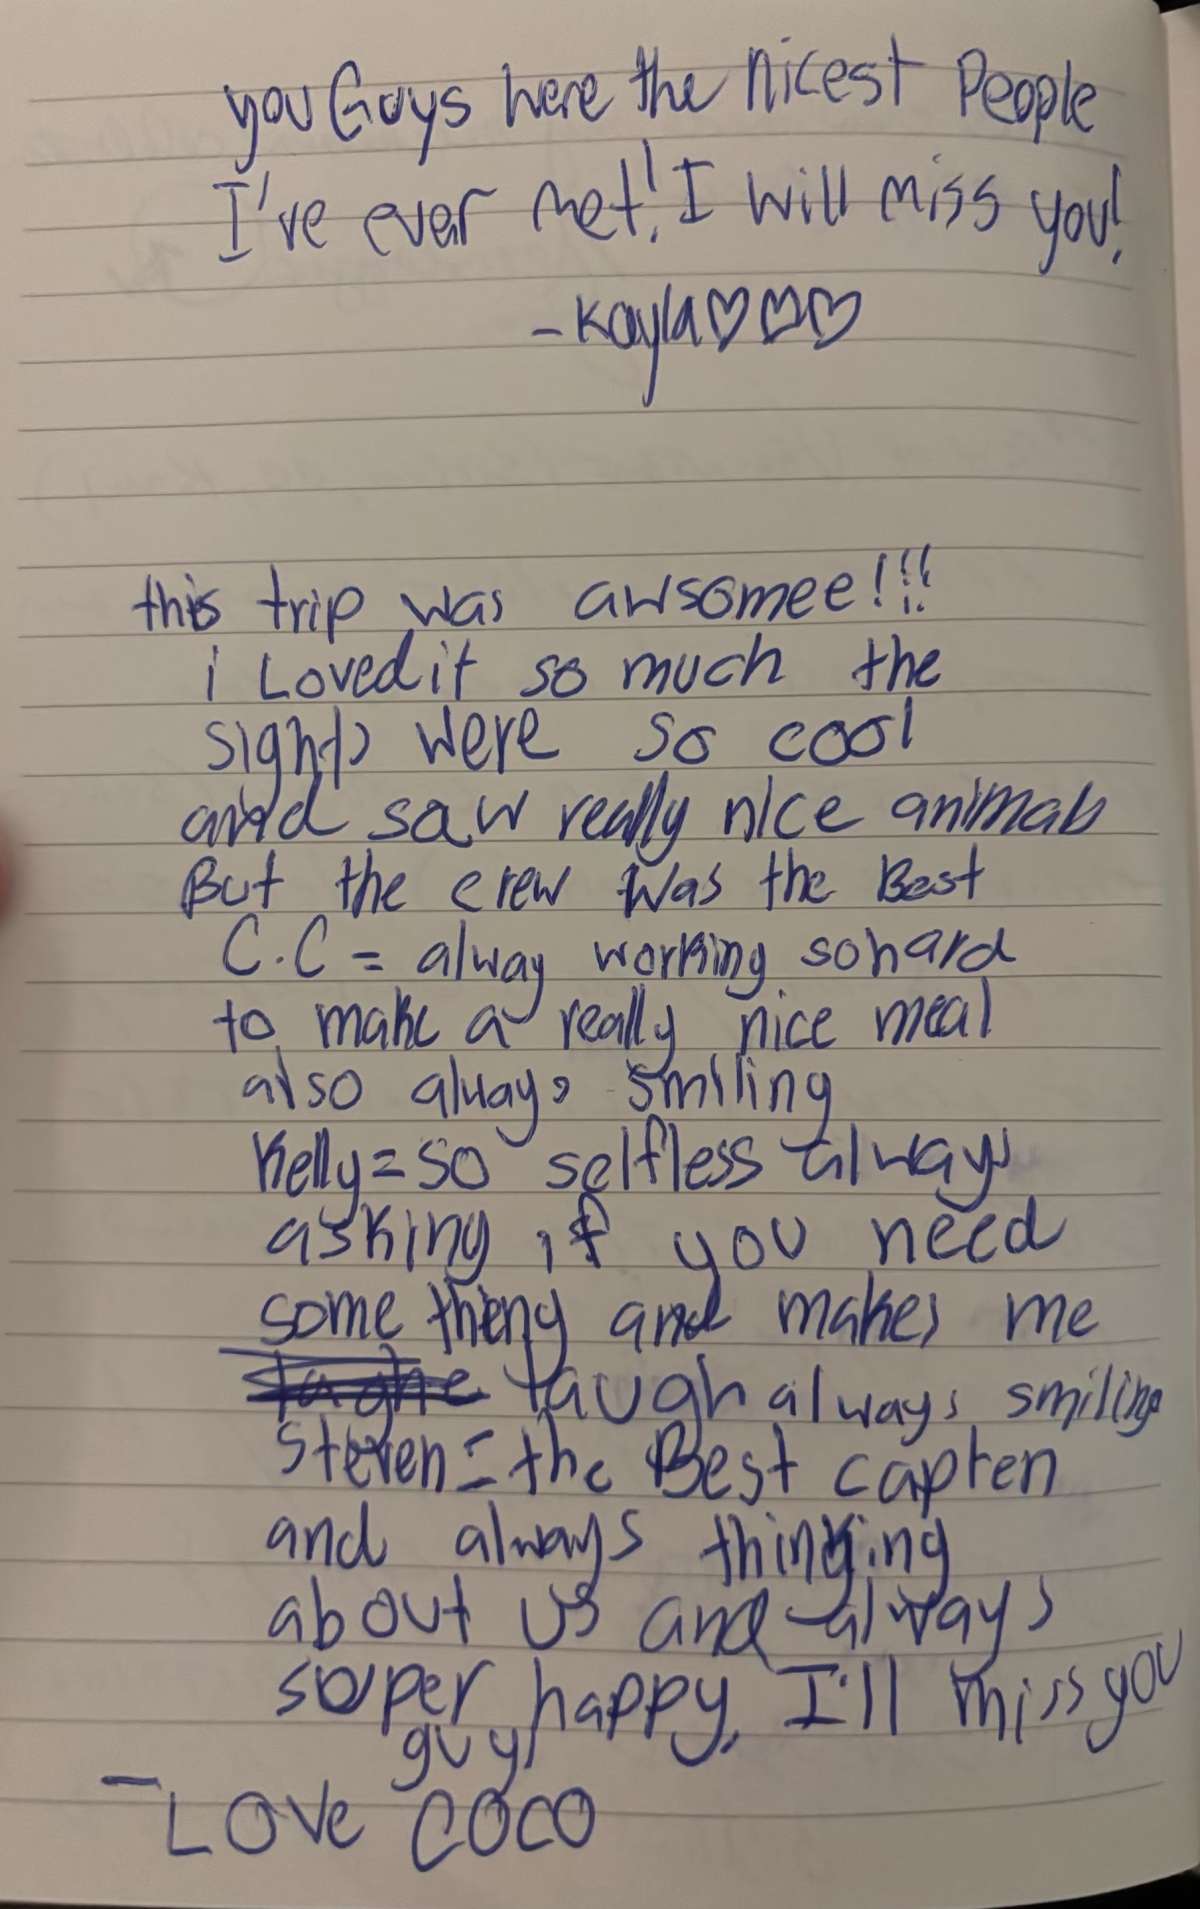 you Guys were the nicest People
I've ever met! I will miss you!
- Kayla♡♡♡
this trip was awsomee!!!
i Loved it so much the
sights were so cool
and saw really nice animals
But the crew was the Best
C.C = alway working so hard
to make a really nice meal
also always smiling
Kelly = so selfless always
asking if you need
some thing and makes me
laugh always smiling
Steven = the Best capten
and always thinking
about us and always
super happy. I'll miss you
guys
- Love COCO